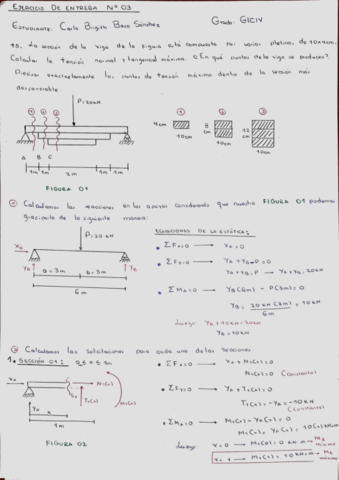 EJERCICIO DE ENTREGA Nº 03
ESTUDIANTE: Carla Brigith Baca Sánchez Grado: GICIV
13. La sección de la viga de la figura está compuesta por varias pletinas de 10x4cm.
Calcular la tensión normal y tangencial máxima. ¿En qué puntos de la viga se producen?
Precisar exactamente los puntos de tensión máxima dentro de la sección más
desfavorable.
P=20kN
① ② ③
① ② ③
4cm
10cm
8 cm
10cm
12 cm
10cm
A B C
1m 1m 2m 1m 1m
FIGURA 01
Calculamos las reacciones en los apoyos considerando que nuestra FIGURA 01 podemos
graficarla de la siguiente manera:
ECUACIONES DE LA ESTÁTICA:
P=20 kN
a=3m b=3m
6m
ΣFx=0 → XA=0
ΣFy=0 → YA+YB-P=0
YA+YB=P → YA+YB=20kN
ΣMA=0 → YB(6m) - P(3m)=0
YB = 20kN(3m) = 10kN
6m
Luego: YA+10kN=20kN
YA=10kN
Calculamos las solicitaciones para cada una de las secciones:
1. SECCIÓN 01: 0 ≤ x ≤ 1m
1m
FIGURA 02
ΣFx=0 → XA+N1(x)=0
N1(x)=0 (Constante)
ΣFy=0 → YA+T1(x)=0
T1(x)=-YA=-10kN
(Constante)
ΣMA=0 → M1(x)-YA(x)=0
M1(x)=YA(x)=10(x) kN·m
Luego: x=0 → M1(0)=0 kN·m → Mz
mínimo
x=1 → M1(1)=10kN·m → Mz
máximo